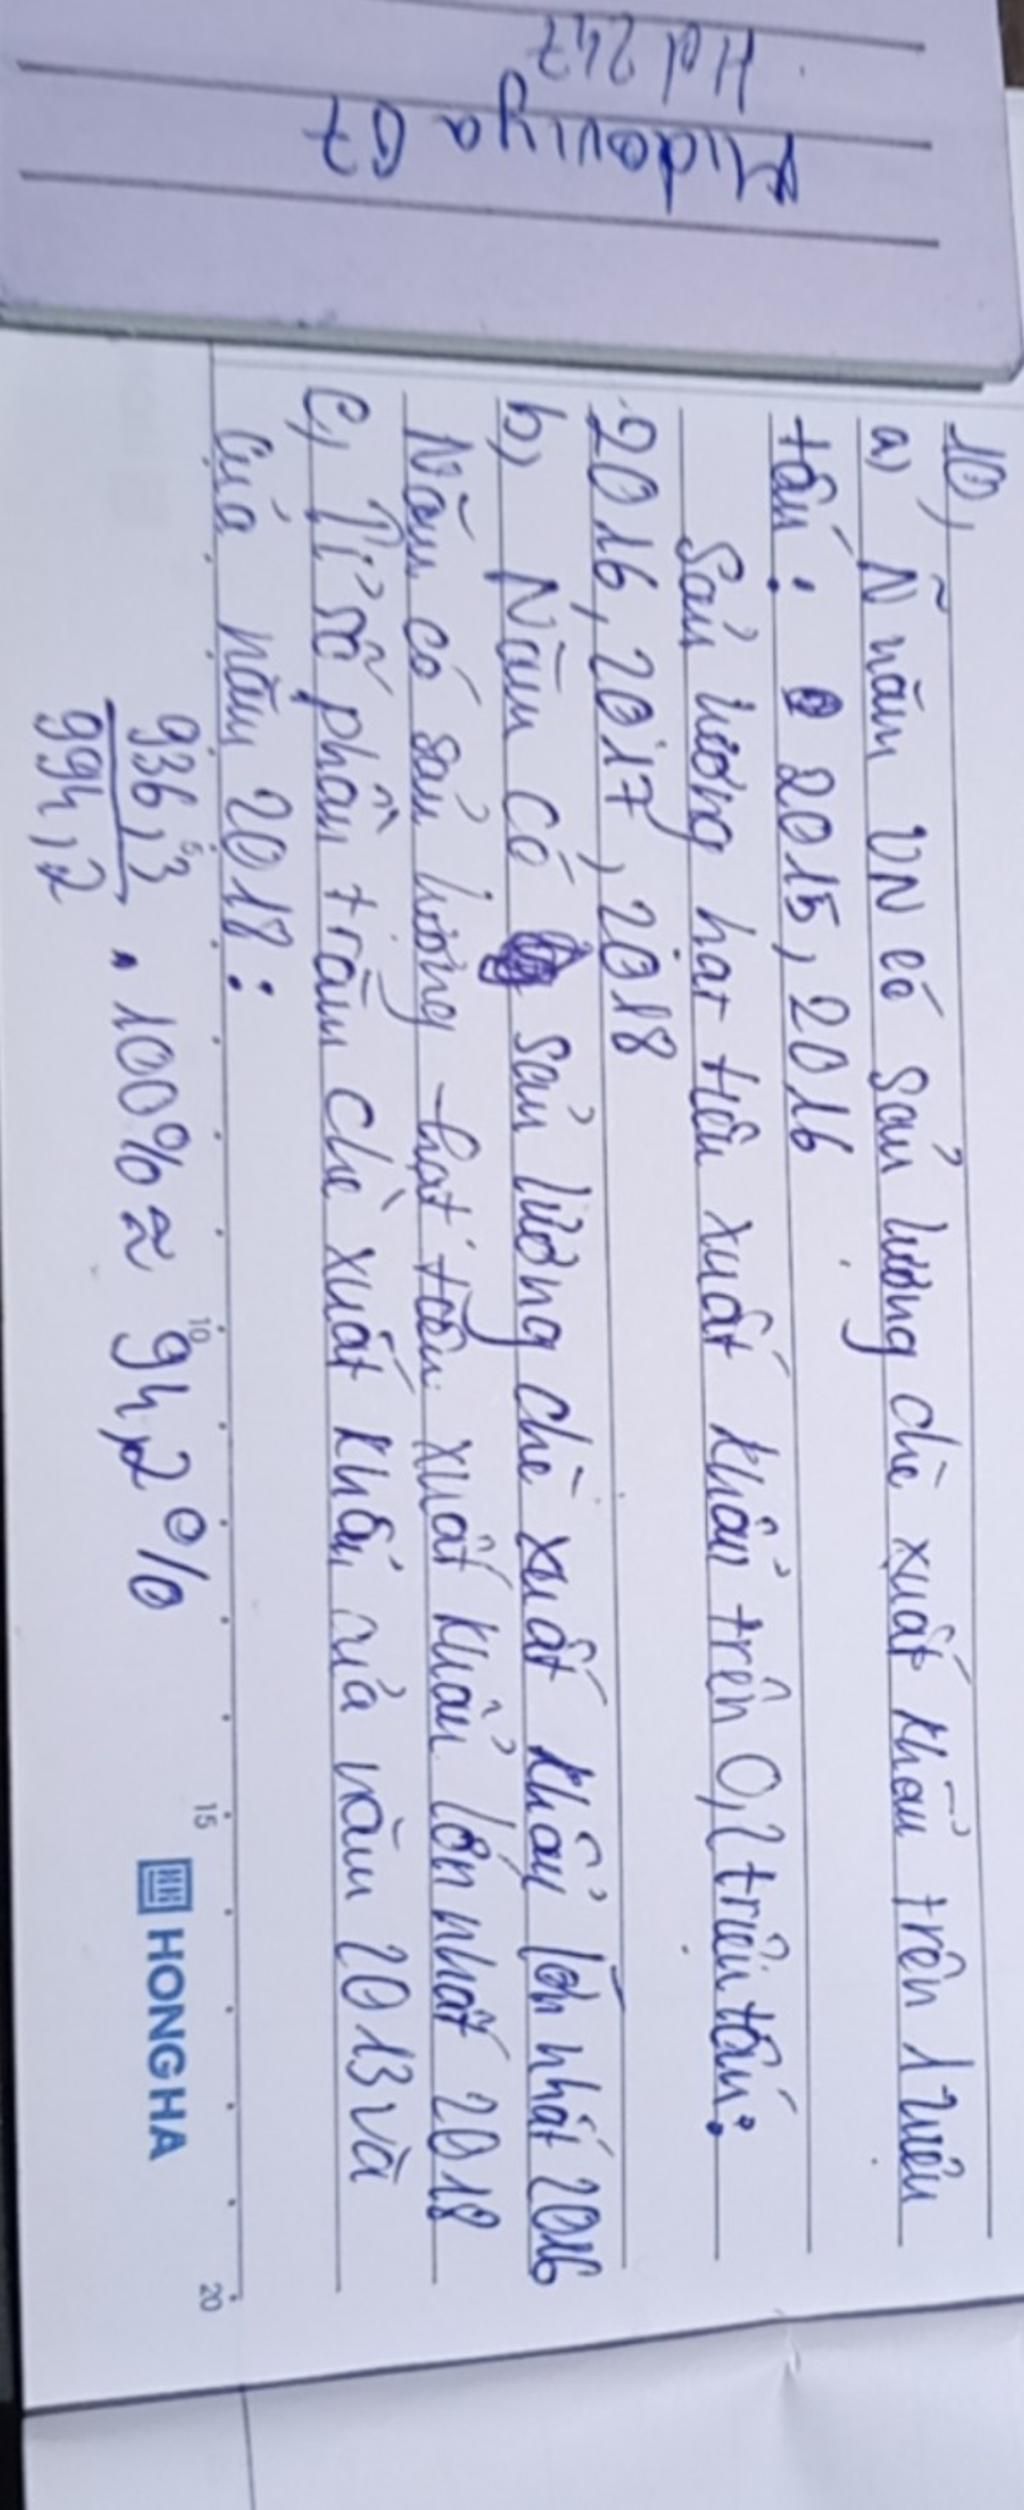 Hd247
Midoviya 07
10,
a) Ñ năm VN có sản lượng chè xuất khẩu trên 1 triệu
tấn: 2015, 2016
Sản lượng hạt tiêu xuất khẩu trên 0,2 triệu tấn:
2016, 2017, 2018
b) Năm có sản lượng chè xuất khẩu lớn nhất 2016
Năm có sản lượng hạt tiêu xuất khẩu lớn nhất 2018
c, Tỉ số phần trăm chè xuất khẩu của năm 2013 và
của năm 2018:
936,3
994,2
. 100% ≈ 94,2%
5
10
15
20
HONG HA